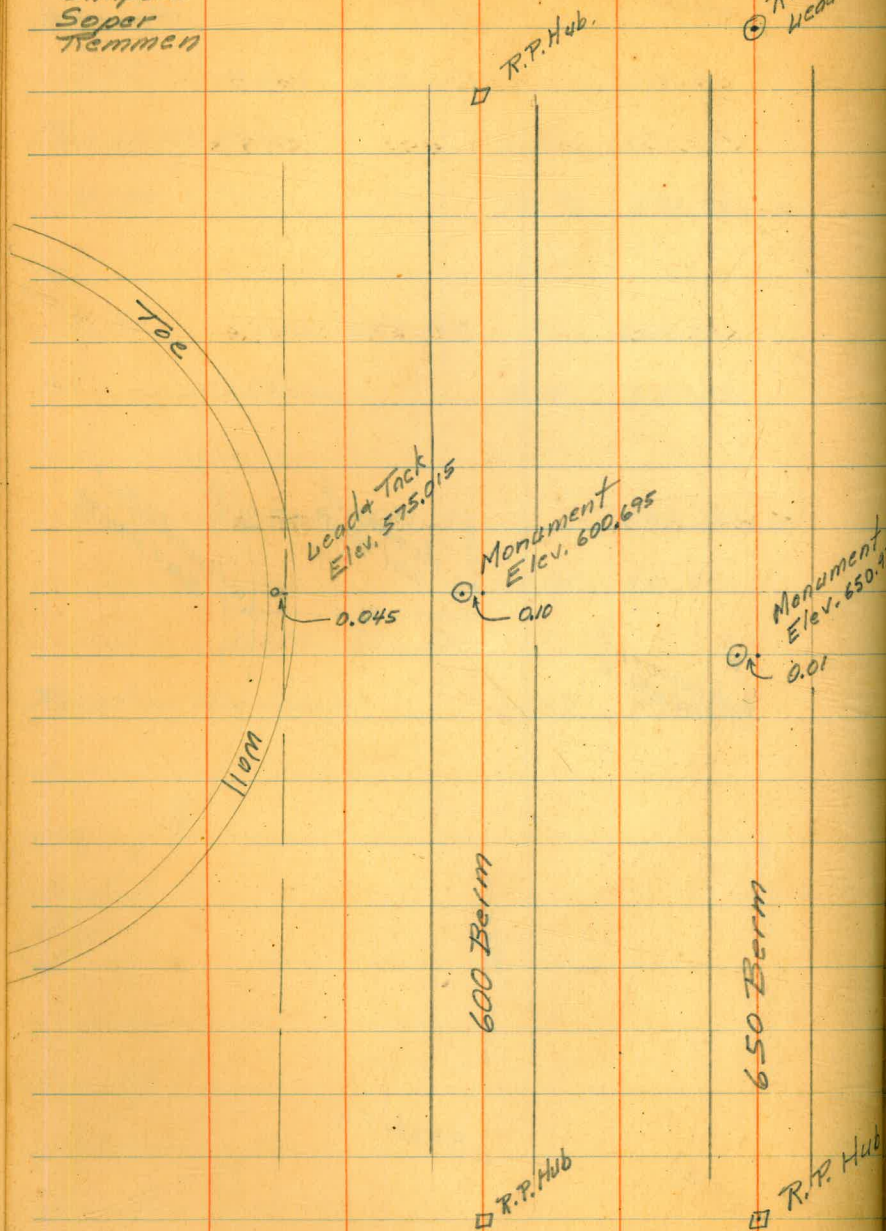 Soper
Remmen
R.P. Hub.
Lead
Toe
Lead & Tack
Elev. 575.015
0.045
Monument
Elev. 600.695
0.10
Monument
Elev. 650.
0.01
Wall
600 Berm
650 Berm
R.P. Hub
R.P. Hub